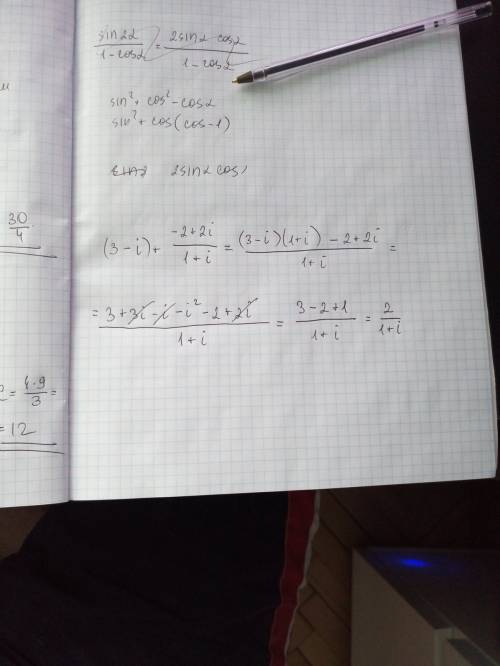 sin2α/1-cosα = 2sinα cosα/1-cosα
sin² + cos² - cosα
sin² + cos(cos-1)
2sinα cos
30/4
(3-i)+ -2+2i/1+i = (3-i)(1+i) -2+2i/1+i =
= 3+3i-i-i²-2+2i/1+i = 3-2+1/1+i = 2/1+i
= 4·9/3 =
= 12